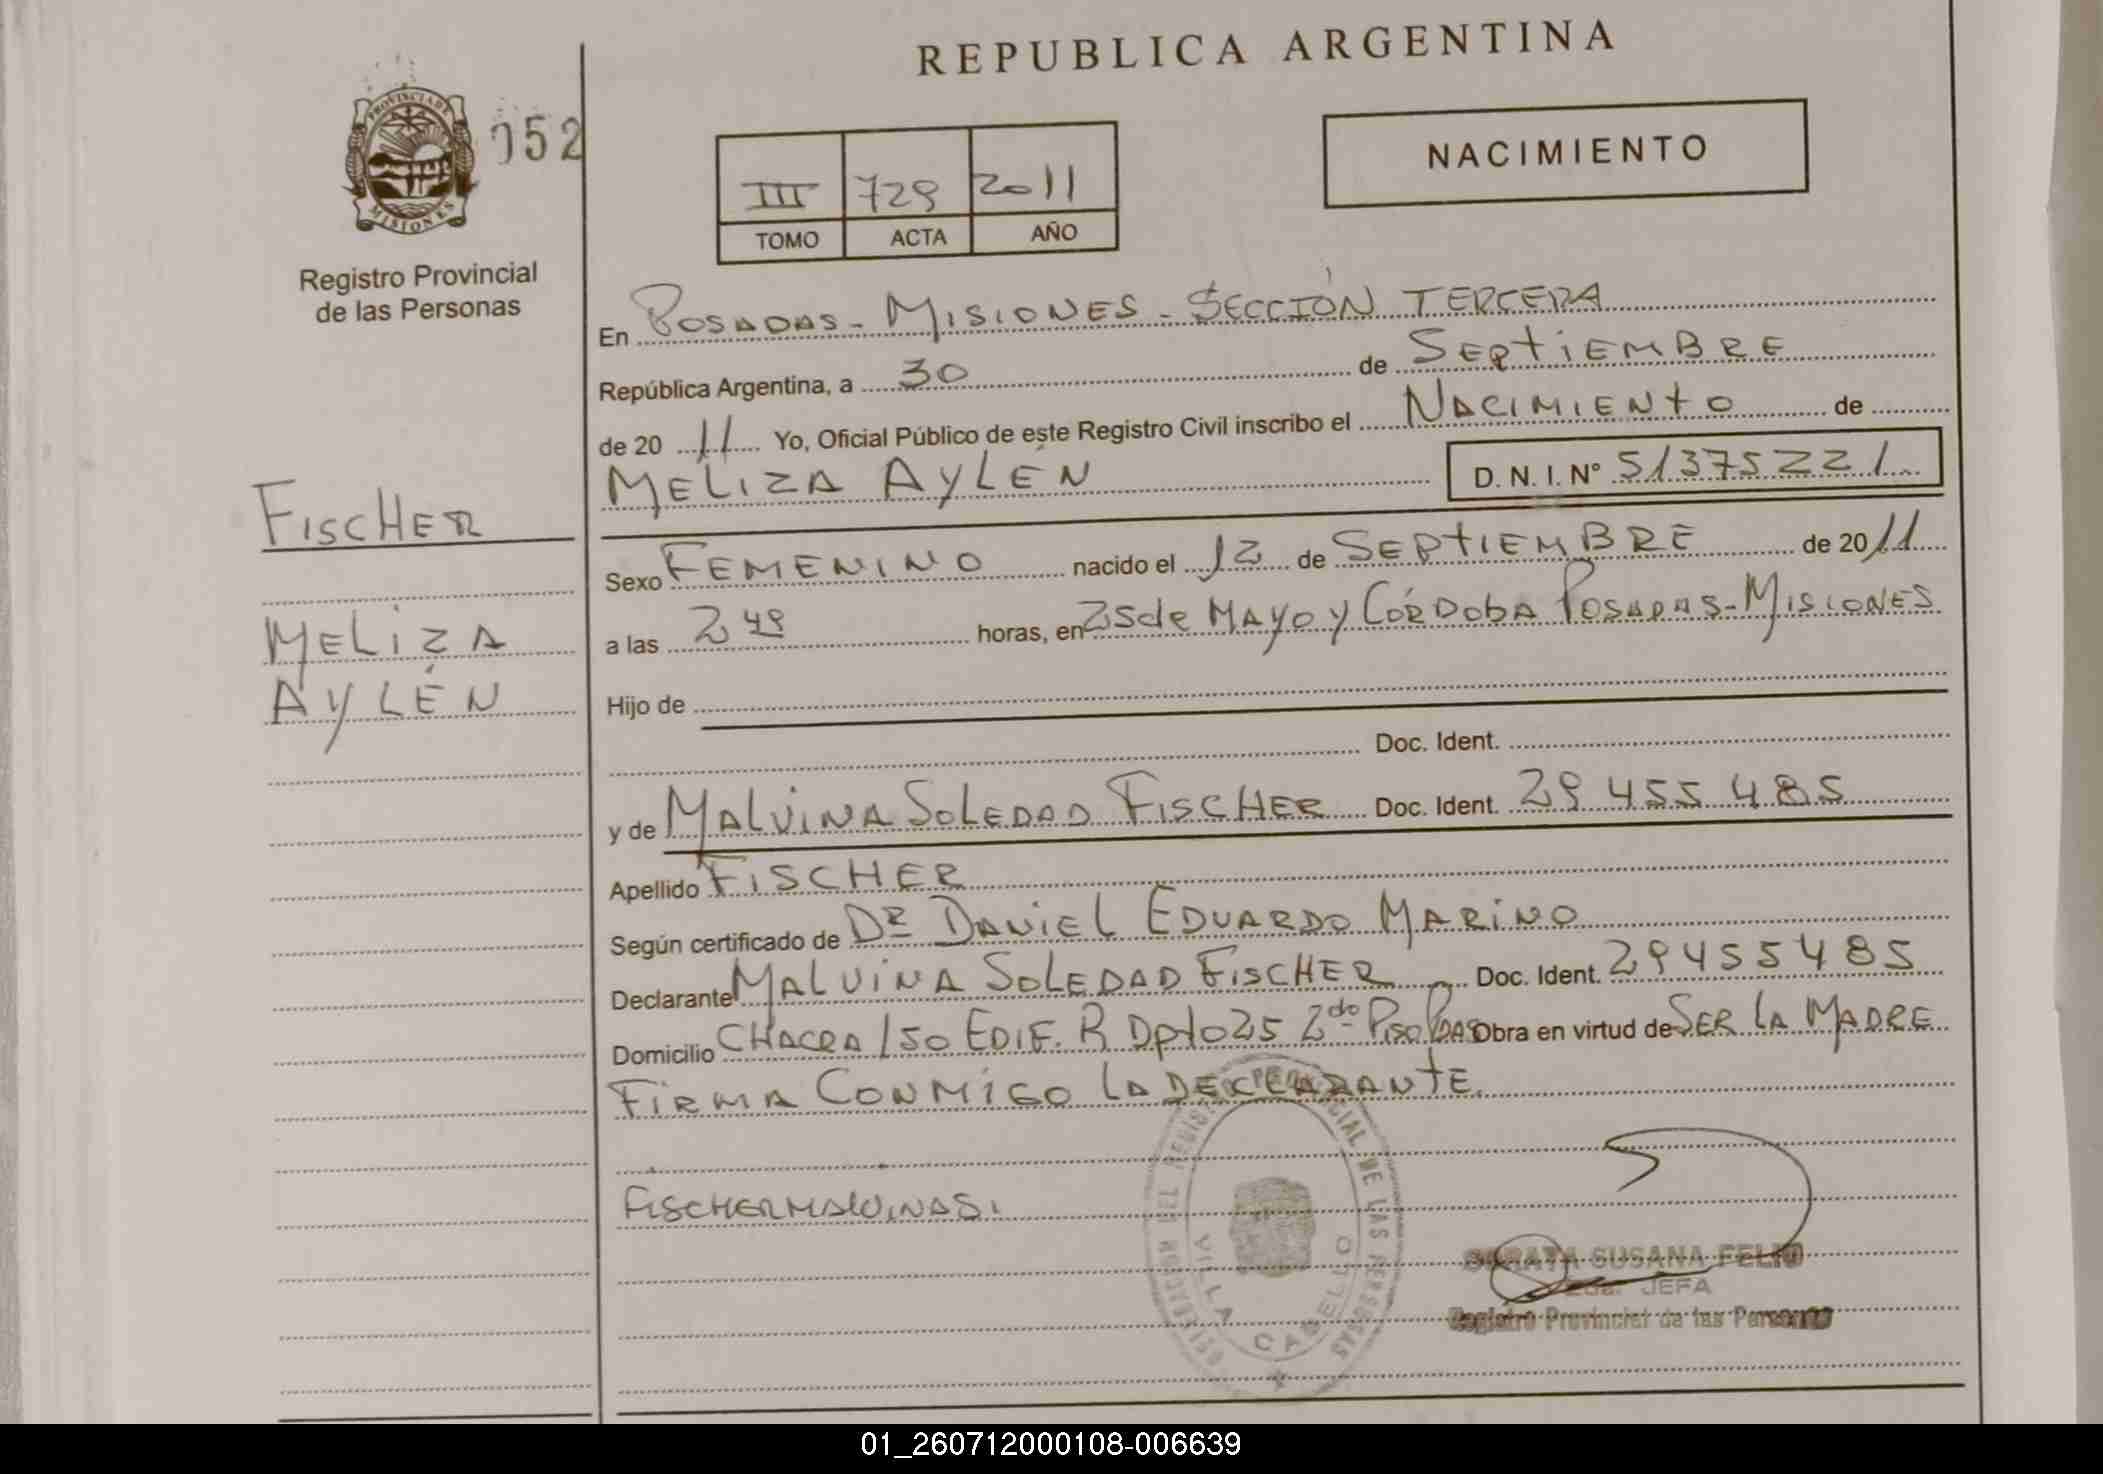 REPUBLICA ARGENTINA
PROVINCIA DE MISIONES
052
NACIMIENTO
III 729 2011
TOMO ACTA AÑO
Registro Provincial
de las Personas
En POSADAS - MISIONES - SECCIÓN TERCERA
República Argentina, a 30 de SEPTIEMBRE
de 20 11 Yo, Oficial Público de este Registro Civil inscribo el NACIMIENTO de
MELIZA AYLÉN D. N. I. N° 51375221
FISCHER
MELIZA
AYLÉN
Sexo FEMENINO nacido el 12 de SEPTIEMBRE de 20 11
a las horas, en 25 de MAYO y CÓRDOBA POSADAS - MISIONES
Hijo de
Doc. Ident.
y de MALVINA SOLEDAD FISCHER Doc. Ident. 29 455 485
Apellido FISCHER
Según certificado de DR DANIEL EDUARDO MARINO
Declarante MALVINA SOLEDAD FISCHER Doc. Ident. 29455485
Domicilio CHACRA 150 EDIF. R Dpto 25 2do PISO PDAS Obra en virtud de SER LA MADRE
FIRMA CONMIGO LA DECLARANTE.
FISCHER MALVINA S.
DEL REGISTRO PROVINCIAL DE LAS PERSONAS
VILLA CABELLO
SUSANA FELIU
JEFA
Registro Provincial de las Personas
01_260712000108-006639